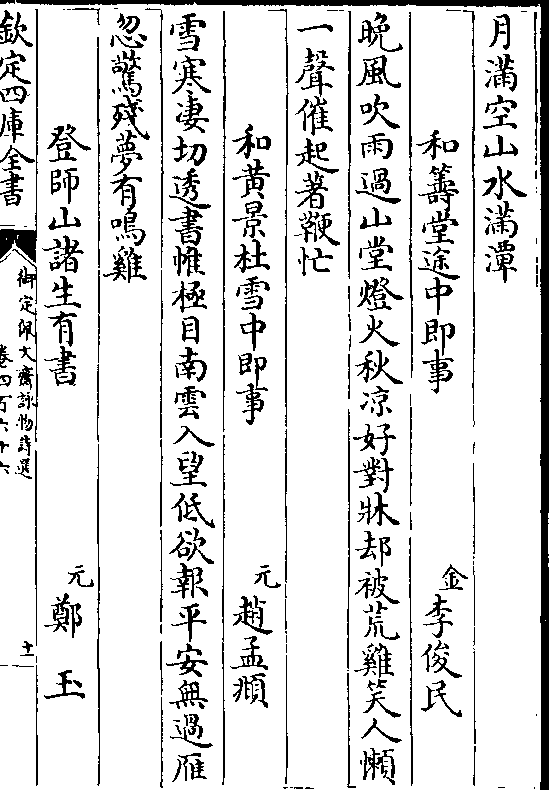 月滿空山水滿潭
和籌堂途中即事　金李俊民
晚風吹雨過山堂燈火秋凉好對牀却被荒雞笑人懶
一聲催起著鞭忙
和黃景杜雪中即事　元趙孟頫
雪寒凄切透書帷極目南雲入望低欲報平安無過雁
忽驚殘夢有鳴雞
登師山諸生有書　元鄭玉
欽定四庫全書
御定佩文齋詠物詩選
卷四百六十六
十一